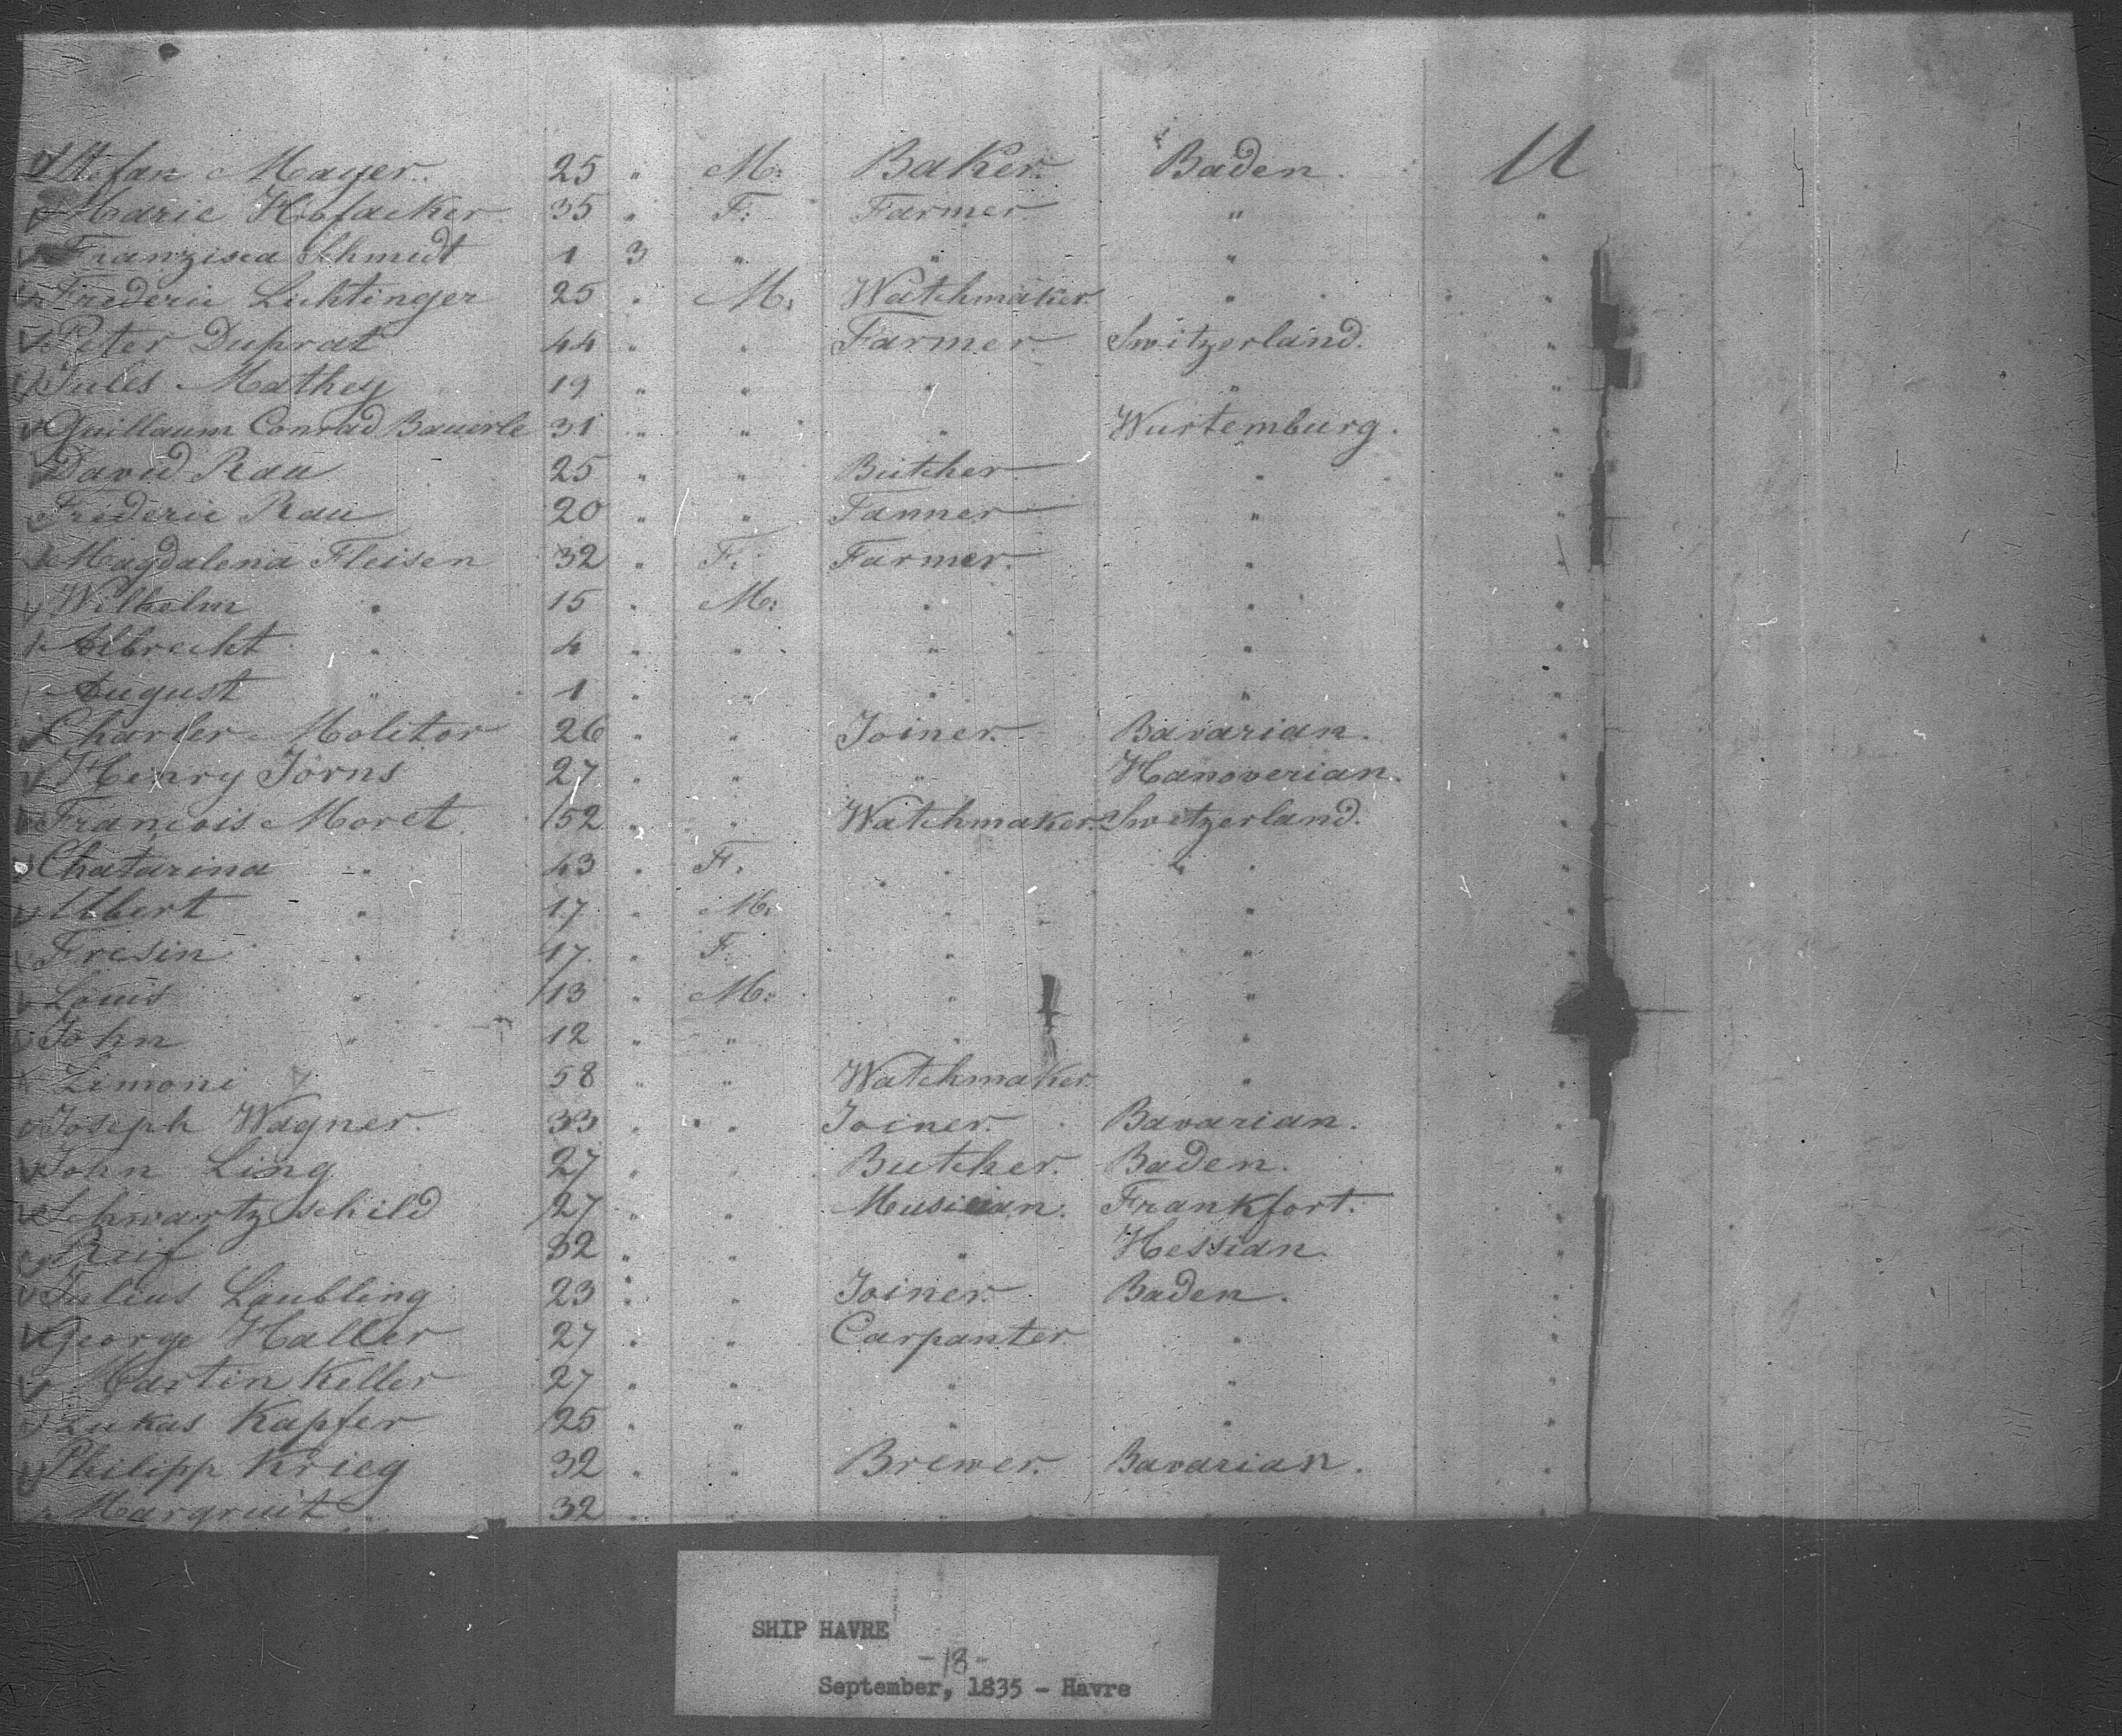 Stefan Mayer. 25 " M. Baker. Baden.
Marie Hofacker 35 " F. Farmer " "
Franzisca Schmidt 1 3 " " " "
Frederic Luhtinger 25 " M. Watchmaker " "
Peter Duprat 44 " " Farmer Switzerland. "
Jules Mathey 19 " " " " "
Guillaum Conrad Bauerle 31 " " " Wurtemburg. "
David Rau 25 " " Butcher " "
Frederic Rau 20 " " Tanner " "
Magdalena Fleisen 32 " F. Farmer. " "
Wilhelm " 15 " M. " " "
Albrecht " 4 " " " " "
August " 1 " " " " "
Charles Molitor 26 " " Joiner. Bavarian. "
Henry Jörns 27 " " " Hanoverian. "
Francois Moret 52 " " Watchmaker. Switzerland. "
Chatarina " 43 " F. " " "
Albert " 17 " M. " " "
Fresin " 17 " F. " " "
Louis " 13 " M. " " "
John " 12 " " " " "
Zimoni 58 " " Watchmaker " "
Joseph Wagner. 33 " " Joiner. Bavarian. "
John Ling 27 " " Butcher. Baden. "
Schwartzschild 27 " " Musician. Frankfort. "
Reif 32 " " " Hessian. "
Julius Laubling 23 " " Joiner. Baden. "
George Haller 27 " " Carpanter " "
Martin Keller 27 " " " " "
Lukas Kapfer 25 " " " " "
Philipp Krieg 32 " " Brewer. Bavarian. "
Margruit 32
SHIP HAVRE
-18-
September, 1835 - Havre